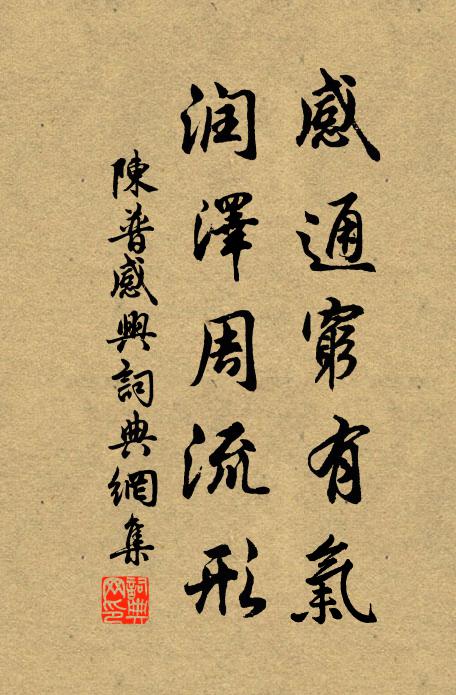 感通窮有氣
润澤周流形
陳普感興詞典網集
詞典网印